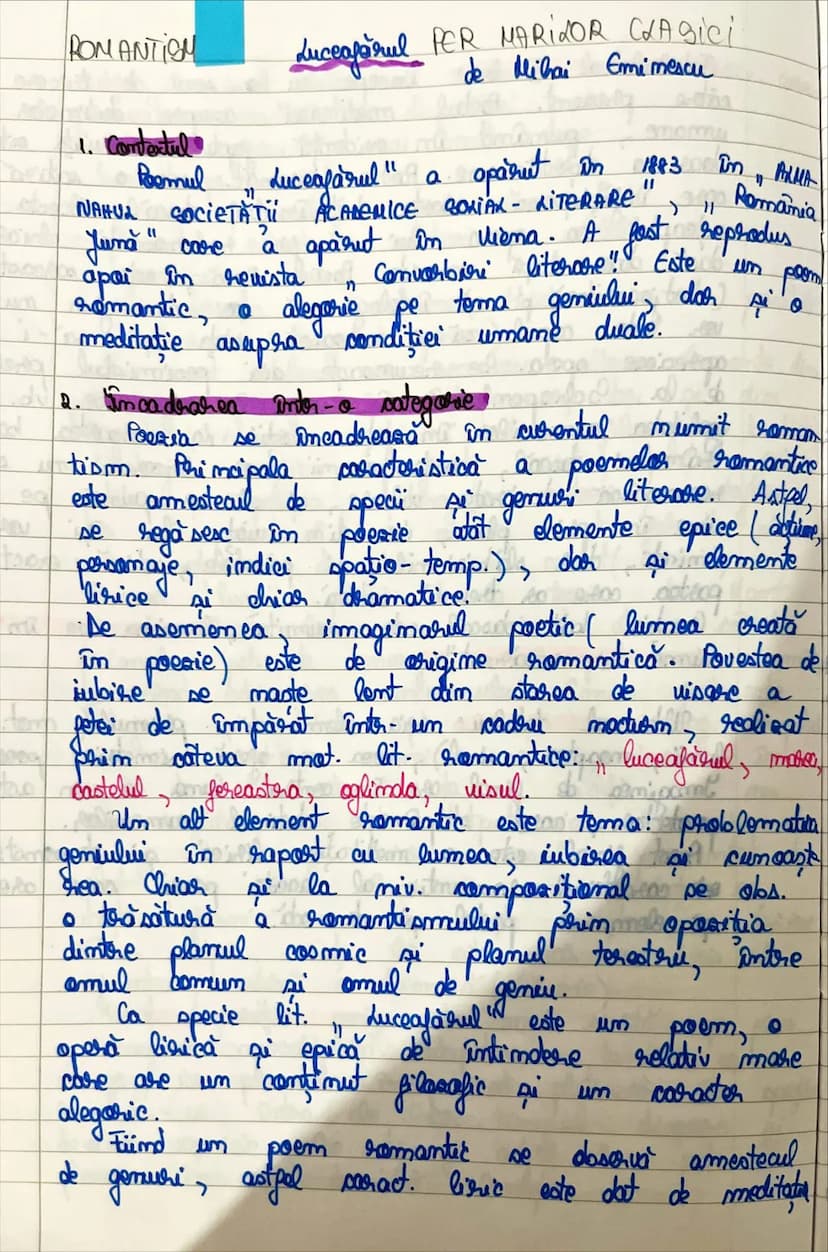 ROMANTISM Luceafărul PER. MARILOR CLASICI
de Mihai Eminescu
1. Contextul
Poemul „Luceafărul" a apărut în 1883 în „ALMA-
NAHUL SOCIETĂȚII ACADEMICE SOCIAL-LITERARE", „România
Jună" care a apărut în Viena. A fost reprodus
apoi în revista „Convorbiri literare". Este un poem
romantic, o alegorie pe tema geniului, dar și o
meditație asupra condiției umane duale.
2. Încadrarea într-o categorie
Poezia se încadrează în curentul numit roman-
tism. Principala caracteristică a poemelor romantice
este amestecul de specii și genuri literare. Astfel,
se regăsesc în poezie atât elemente epice (acțiune,
personaje, indici spațio-temp.), dar și elemente
lirice și chiar dramatice.
De asemenea, imaginarul poetic (lumea creată
în poezie) este de origine romantică. Povestea de
iubire se naște lent din starea de visare a
fetei de împărat într-un cadru nocturn, realizat
prin câteva mot. lit. romantice: „luceafărul, marea,
castelul, fereastra, oglinda, visul.
Un alt element romantic este tema: problematica
geniului în raport cu lumea, iubirea și cunoaște
rea. Chiar și la niv. compozițional se obs.
o trăsătură a romantismului prin opoziția
dintre planul cosmic și planul terestru, între
omul comun și omul de geniu.
Ca specie lit. „Luceafărul" este un poem, o
operă lirică și epică de întindere relativ mare
care are un conținut filozofic și un caracter
alegoric.
Fiind un poem romantic se observă amestecul
de genuri, astfel caract. liric este dat de meditația